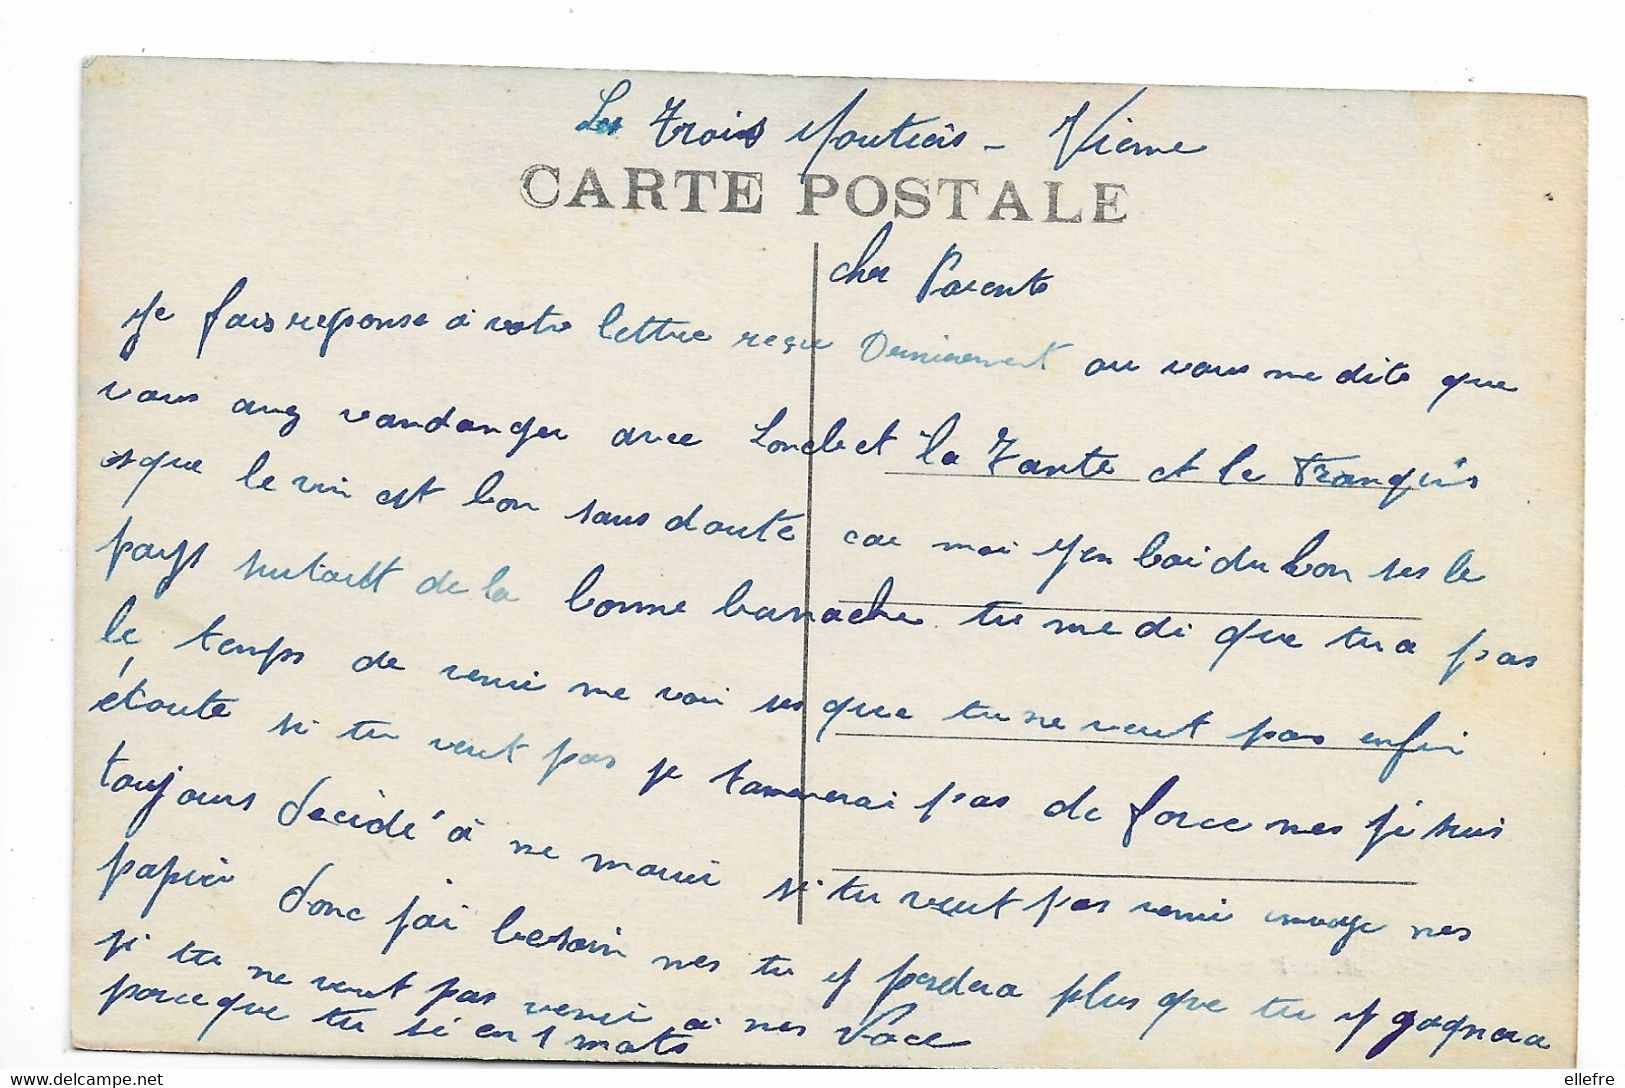 Les Trois Moutiers - Vienne
CARTE POSTALE
cher Parents
Je fais reponse a votre lettre reçu Dernierement ou vous me dite que
vous avez vandanger avec Loncle et la Tante et le Françis
que le vin est bon sans doute car moi j'en boi du bon ses le
pays surtout de la bonne tu me di que tu a pas
le temps de venir me voir ses que tu ne veut pas enfin
écoute si tu veut pas je tamenerai pas de force mes je suis
toujours decidé a me marier si tu veut pas venir envoye mes
papier donc j'ai besoin mes tu y perdera plus que tu y gagnera
si tu ne veut pas venir a mes Noce
parce que tu
delcampe.net
ellefre